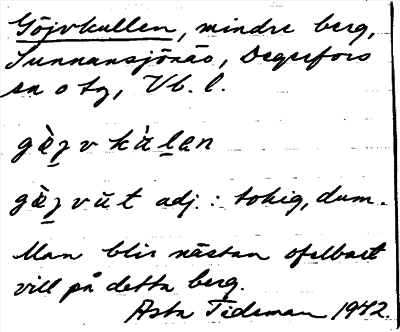 Göjvkullen, mindre berg,
Sunnansjönäs, Degerfors
sn o tg, Vb. l.
gὰʒvkὰlan
gὰʒvὰt adj.: tokig, dum.
Man blir nästan ofelbart
vill på detta berg.
Asta Tideman 1942.